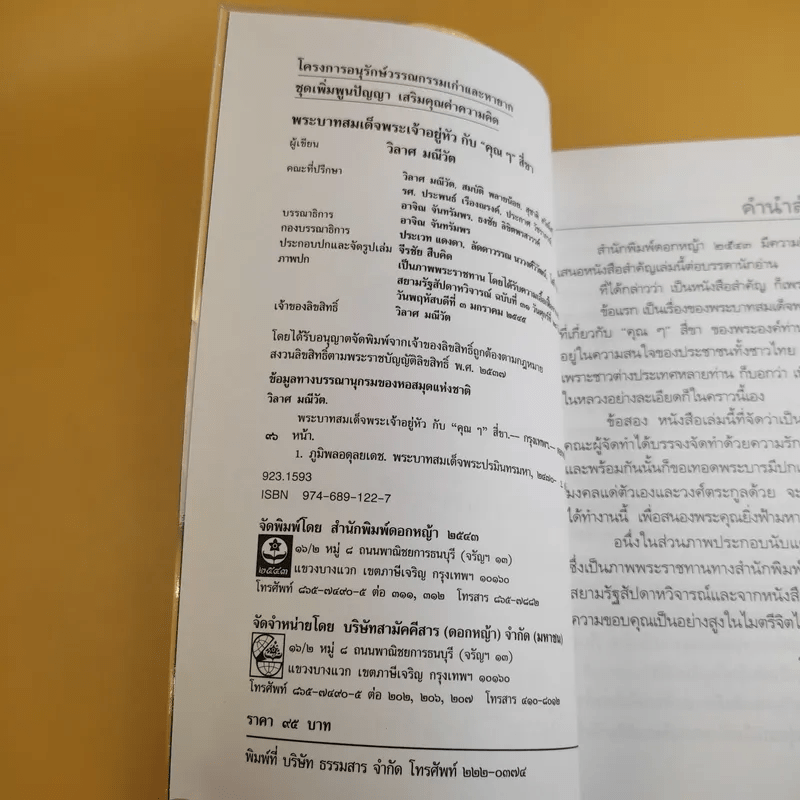 โครงการอนุรักษ์วรรณกรรมเก่าและหายาก
ชุดเพิ่มพูนปัญญา เสริมคุณค่าความคิด
พระบาทสมเด็จพระเจ้าอยู่หัว กับ “คุณ ๆ” สี่ขา
ผู้เขียน วิลาศ มณีวัต
คณะที่ปรึกษา วิลาศ มณีวัต, สมบัติ พลายน้อย,
รศ. ประพนธ์ เรืองณรงค์, ประกาศ
อาจิณ จันทรัมพร, ธงชัย ลิขิตพรสวรรค์
บรรณาธิการ อาจิณ จันทรัมพร
กองบรรณาธิการ ประเวท แดงดา, ลัดดาวรรณ
ประกอบปกและจัดรูปเล่ม จีรชัย สืบคิด
ภาพปก เป็นภาพพระราชทาน โดยได้รับความเอื้อเฟื้อ
สยามรัฐสัปดาหวิจารณ์ ฉบับที่ ๓๑
วันพฤหัสบดีที่ ๓ มกราคม ๒๕๔๕
เจ้าของลิขสิทธิ์ วิลาศ มณีวัต
โดยได้รับอนุญาตจัดพิมพ์จากเจ้าของลิขสิทธิ์ถูกต้องตามกฎหมาย
สงวนลิขสิทธิ์ตามพระราชบัญญัติลิขสิทธิ์ พ.ศ. ๒๕๓๗
ข้อมูลทางบรรณานุกรมของหอสมุดแห่งชาติ
วิลาศ มณีวัต.
พระบาทสมเด็จพระเจ้าอยู่หัว กับ “คุณ ๆ” สี่ขา.— กรุงเทพฯ.—
๙๖ หน้า.
1. ภูมิพลอดุลยเดช. พระบาทสมเด็จพระปรมินทรมหา, ๒๔๗๐-
923.1593
ISBN 974-689-122-7
จัดพิมพ์โดย สำนักพิมพ์ดอกหญ้า ๒๕๔๓
๒๕๔๓
๑๖/๒ หมู่ ๘ ถนนพาณิชยการธนบุรี (จรัญฯ ๑๓)
แขวงบางแวก เขตภาษีเจริญ กรุงเทพฯ ๑๐๑๖๐
โทรศัพท์ ๘๖๕-๗๔๙๐-๕ ต่อ ๓๑๑, ๓๑๒ โทรสาร ๘๖๕-๗๘๘๒
จัดจำหน่ายโดย บริษัทสามัคคีสาร (ดอกหญ้า) จำกัด (มหาชน)
๑๖/๒ หมู่ ๘ ถนนพาณิชยการธนบุรี (จรัญฯ ๑๓)
แขวงบางแวก เขตภาษีเจริญ กรุงเทพฯ ๑๐๑๖๐
โทรศัพท์ ๘๖๕-๗๔๙๐-๕ ต่อ ๒๐๒, ๒๐๖, ๒๐๗ โทรสาร ๔๑๐-๘๐๑๒
ราคา ๙๕ บาท
พิมพ์ที่ บริษัท ธรรมสาร จำกัด โทรศัพท์ ๒๒๒-๐๓๗๔
คำนำสำ
สำนักพิมพ์ดอกหญ้า ๒๕๔๓ มีความ
เสนอหนังสือสำคัญเล่มนี้ต่อบรรดานักอ่าน
ที่ได้กล่าวว่า เป็นหนังสือสำคัญ ก็เพร
ข้อแรก เป็นเรื่องของพระบาทสมเด็จพ
ที่เกี่ยวกับ “คุณ ๆ” สี่ขา ของพระองค์ท่าน
อยู่ในความสนใจของประชาชนทั้งชาวไทย
เพราะชาวต่างประเทศหลายท่าน ก็บอกว่า
ในหลวงอย่างละเอียดก็ในคราวนี้เอง
ข้อสอง หนังสือเล่มนี้ที่จัดว่าเป็น
คณะผู้จัดทำได้บรรจงจัดทำด้วยความรัก
และพร้อมกันนั้นก็ขอเทอดพระบารมีปก
มงคลแด่ตัวเองและวงศ์ตระกูลด้วย จะ
ได้ทำงานนี้ เพื่อสนองพระคุณยิ่งฟ้ามหา
อนึ่งในส่วนภาพประกอบนับแ
ซึ่งเป็นภาพพระราชทานทางสำนักพิมพ์
สยามรัฐสัปดาหวิจารณ์และจากหนังสือ
ความขอบคุณเป็นอย่างสูงในไมตรีจิตไ